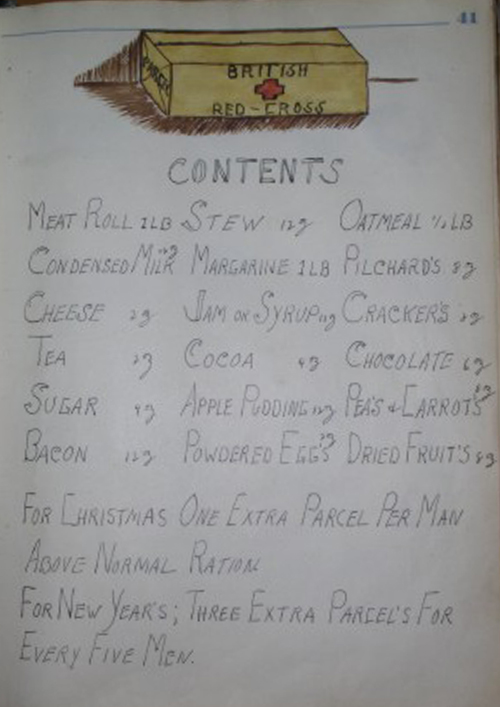 41
BRITISH
RED-CROSS
CONTENTS
MEAT ROLL 1LB STEW 12ʒ OATMEAL ½ LB
CONDENSED MILK MARGARINE 1LB PILCHARD'S 8ʒ
CHEESE 2ʒ JAM OR SYRUP CRACKER'S
TEA 2ʒ COCOA 4ʒ CHOCOLATE 6ʒ
SUGAR 4ʒ APPLE PUDDING 12ʒ PEA'S & CARROTS
BACON 12ʒ POWDERED EGG'S DRIED FRUIT'S 8ʒ
FOR CHRISTMAS ONE EXTRA PARCEL PER MAN
ABOVE NORMAL RATION
FOR NEW YEAR'S; THREE EXTRA PARCEL'S FOR
EVERY FIVE MEN.